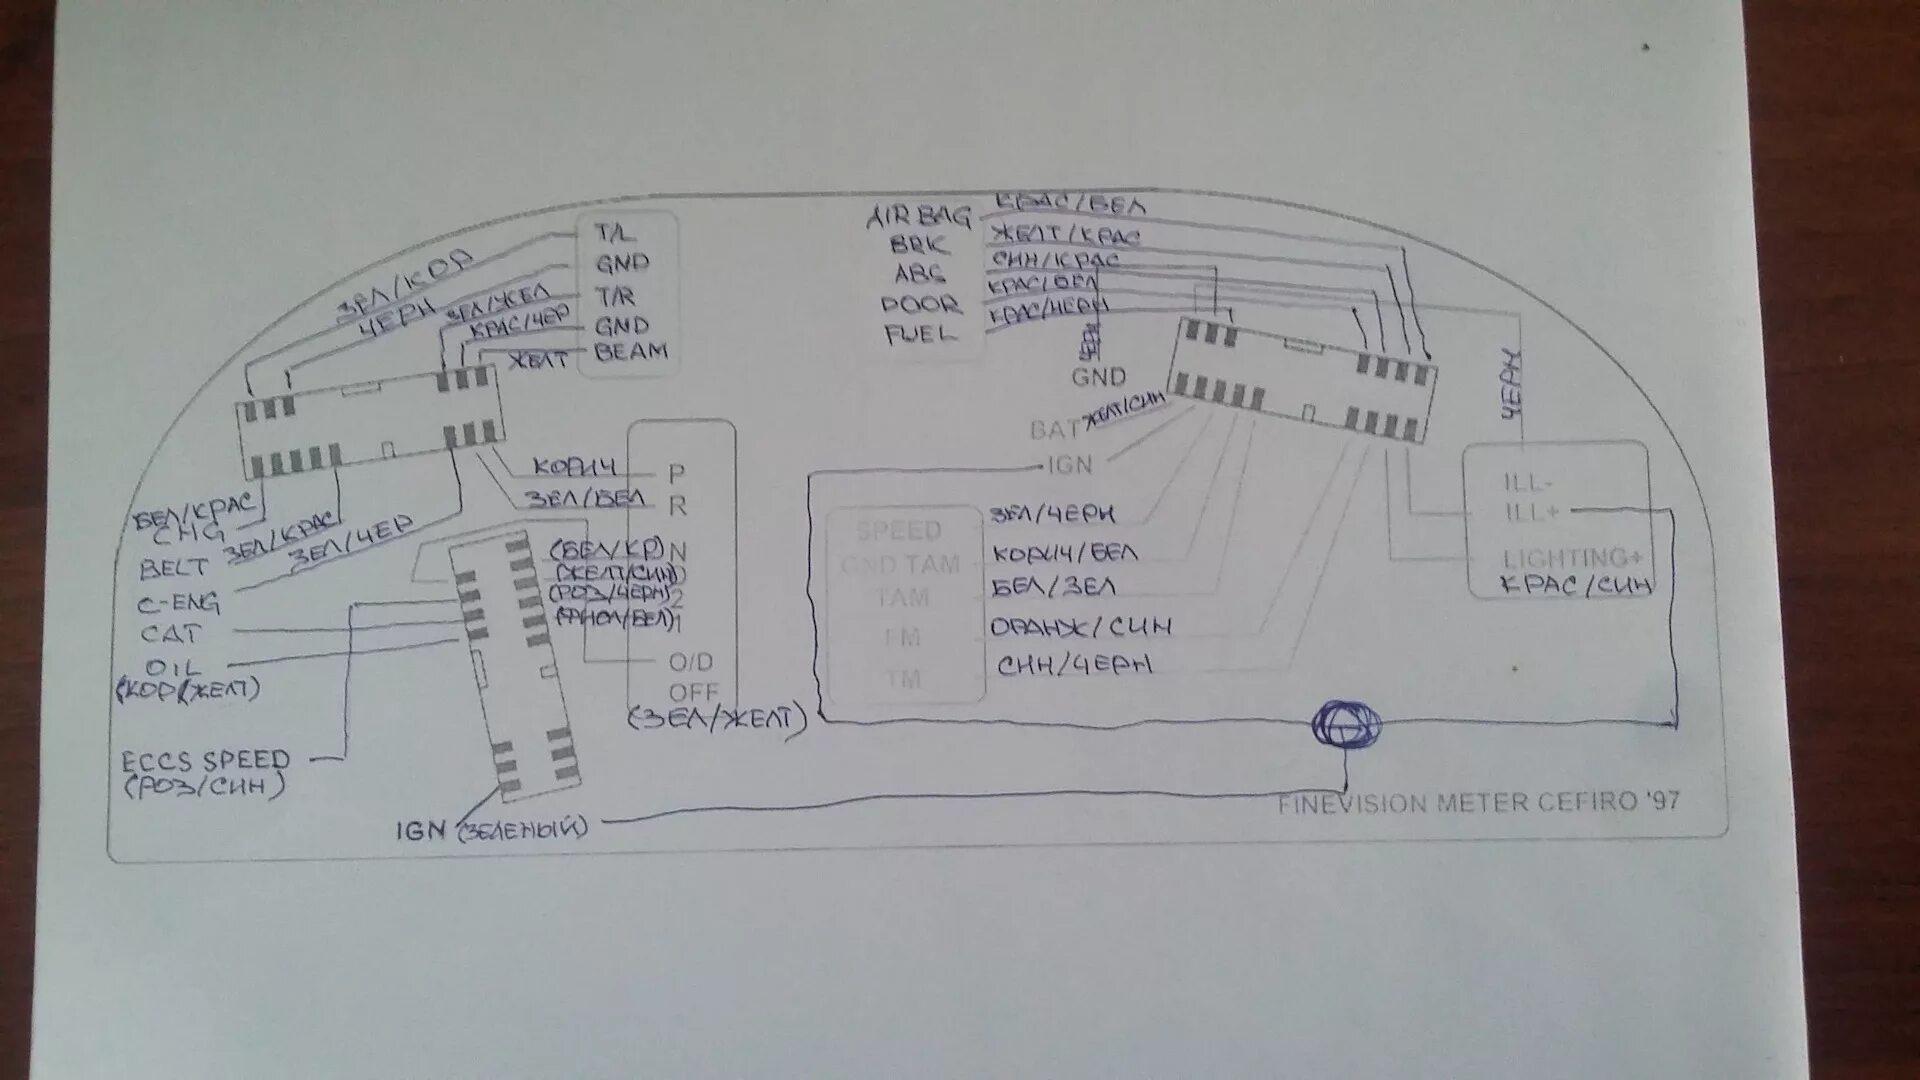 T/L
GND
T/R
GND
BEAM
ЗЕЛ/КОР
ЧЕРН
ЗЕЛ/ЖЕЛ
КРАС/ЧЕР
ЖЕЛТ
AIR BAG КРАС/БЕЛ
BRK ЖЕЛТ/КРАС
СИН/КРАС
DOOR КРАС/БЕЛ
FUEL КРАС/ЧЕРН
GND
BAT ЖЕЛТ/СИН
IGN
ЧЕРН
ILL-
ILL+
LIGHTING+
КРАС/СИН
КОРИЧ P
ЗЕЛ/БЕЛ R
(БЕЛ/КР) N
(ЖЕЛТ/СИН)
(РОЗ/ЧЕРН) 2
1
O/D
OFF
(ЗЕЛ/ЖЕЛТ)
БЕЛ/КРАС
CHG
BELT ЗЕЛ/КРАС
C-ENG ЗЕЛ/ЧЕР
CAT
OIL
(КОР/ЖЕЛТ)
ECCS SPEED
(РОЗ/СИН)
IGN (ЗЕЛЕНЫЙ)
SPEED ЗЕЛ/ЧЕРН
GND TAM КОРИЧ/БЕЛ
TAM БЕЛ/ЗЕЛ
ОРАНЖ/СИН
TM СИН/ЧЕРН
FINEVISION METER CEFIRO '97